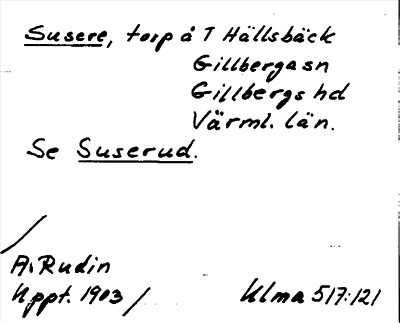 Susere, torp å T Hällsbäck
Gillbergasn
Gillbergs hd
Värml. län.
Se Suserud.
A. Rudin
Uppt. 1903
Ulma 517:121